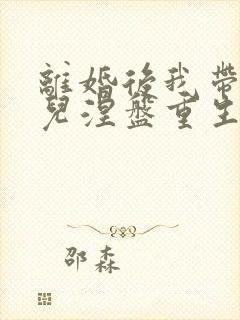 離婚後我帶
兒涅盤重生
邵森